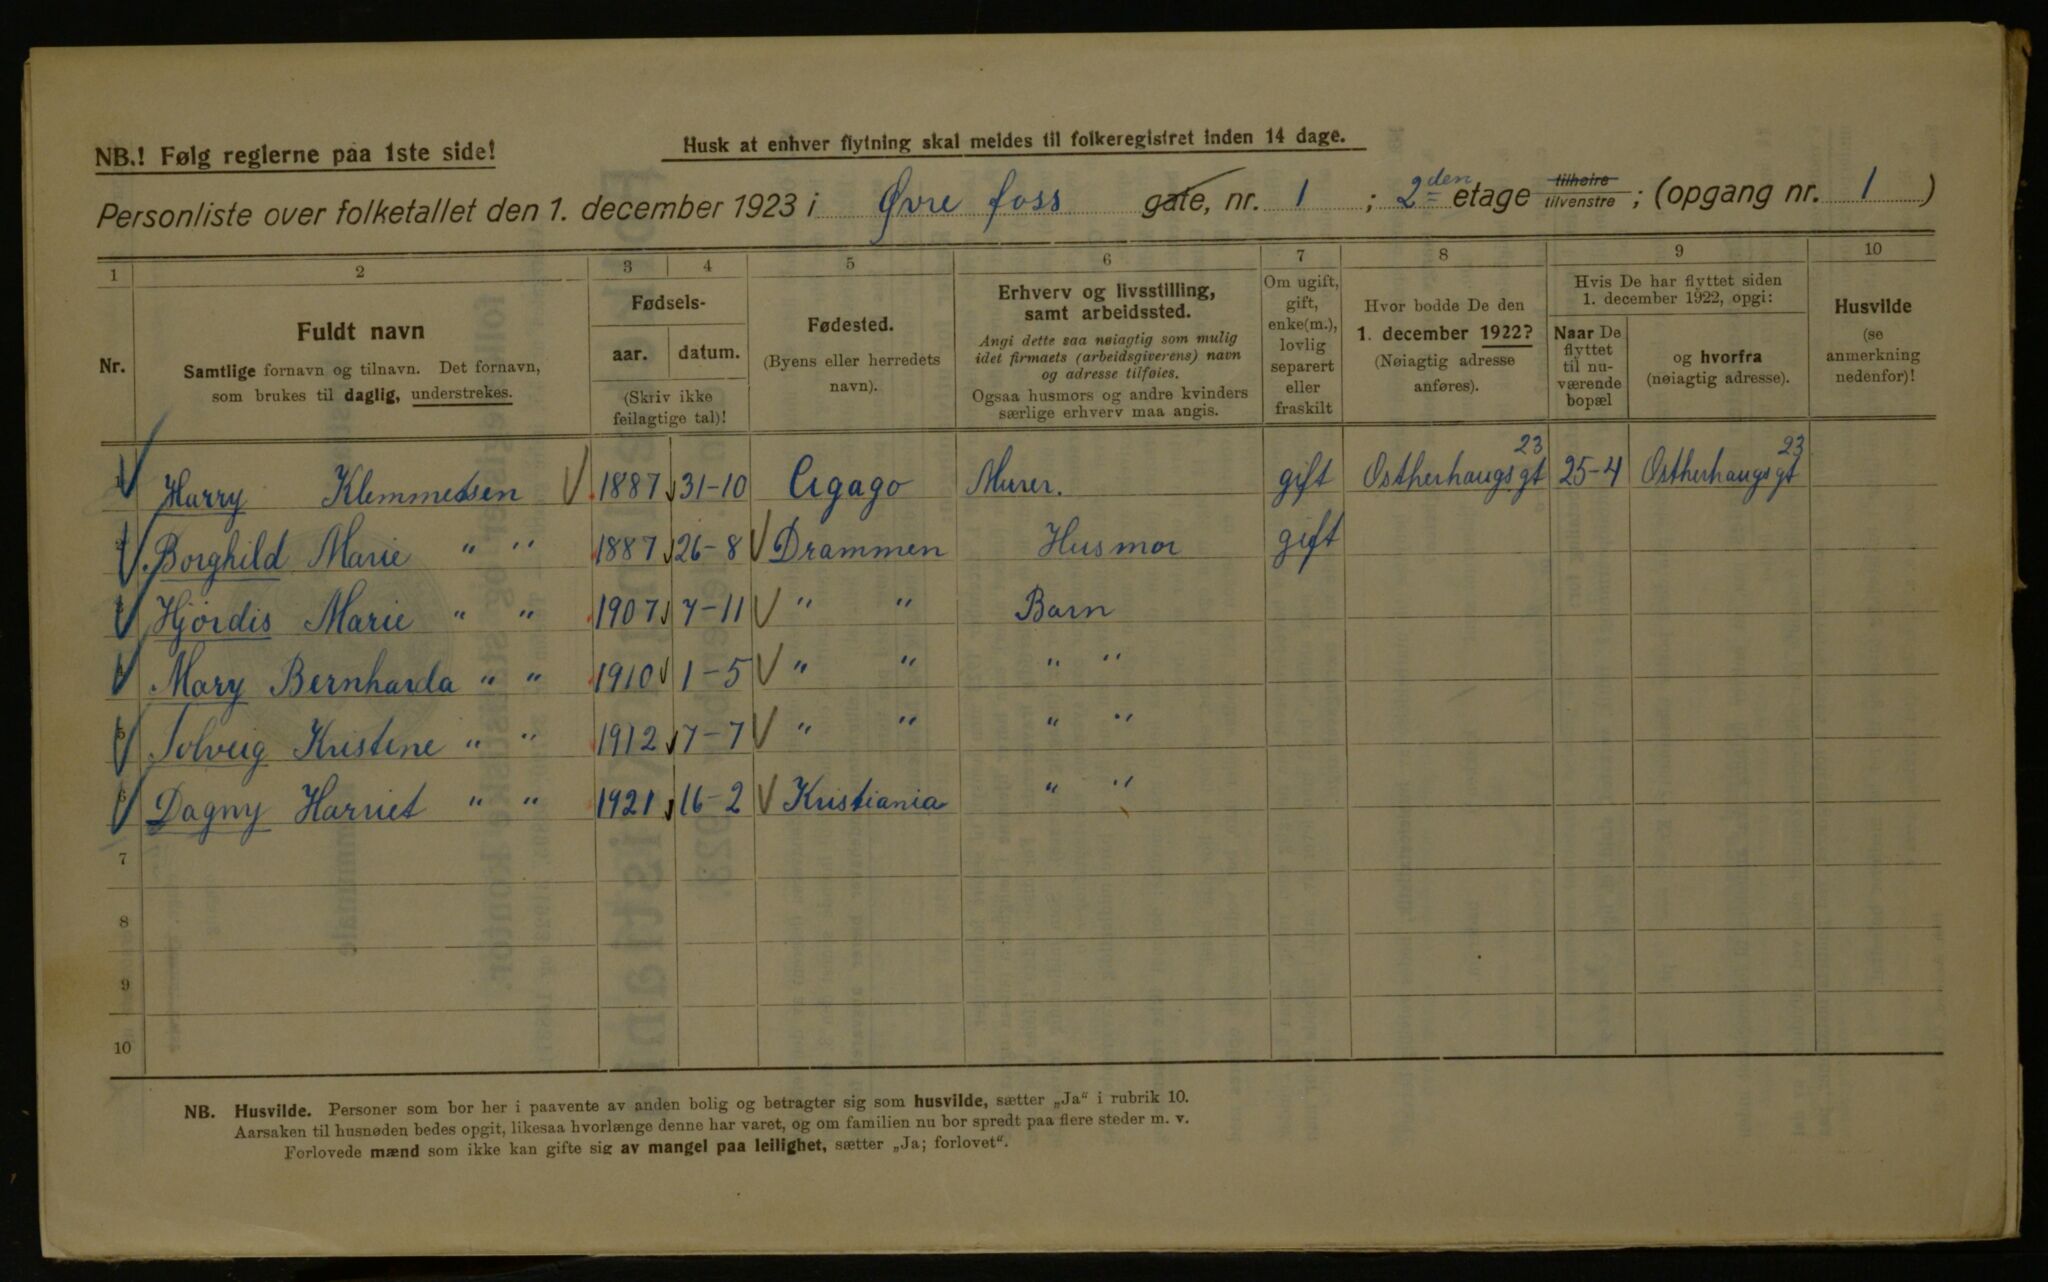 NB.! Følg reglerne paa 1ste side!
Husk at enhver flytning skal meldes til folkeregistret inden 14 dage.
Personliste over folketallet den 1. december 1923 i Øvre foss gate, nr. 1 ; 2den etage tilhøire tilvenstre ; (opgang nr. 1 )
1 2 3 4 5 6 7 8 9 10
Nr.
Fuldt navn
Samtlige fornavn og tilnavn. Det fornavn,
som brukes til daglig, understrekes.
Fødsels-
aar. datum.
(Skriv ikke
feilagtige tal)!
Fødested.
(Byens eller herredets
navn).
Erhverv og livsstilling,
samt arbeidssted.
Angi dette saa nøiagtig som mulig
idet firmaets (arbeidsgiverens) navn
og adresse tilføies.
Ogsaa husmors og andre kvinders
særlige erhverv maa angis.
Om ugift,
gift,
enke(m.),
lovlig
separert
eller
fraskilt
Hvor bodde De den
1. december 1922?
(Nøiagtig adresse
anføres).
Hvis De har flyttet siden
1. december 1922, opgi:
Naar De
flyttet
til nu-
værende
bopæl
og hvorfra
(nøiagtig adresse).
Husvilde
(se
anmerkning
nedenfor)!
1 Harry Klemmetsen 1887 31-10 Cigago Murer. gift Ostherhaugsgt 23 25-4 Ostherhaugsgt 23
2 Borghild Marie " " 1887 26-8 Drammen Husmor gift
3 Hjørdis Marie " " 1907 7-11 " " Barn
4 Mary Bernharda " " 1910 1-5 " " " "
5 Solveig Kristine " " 1912 7-7 " " " "
6 Dagny Harriet " " 1921 16-2 Kristiania " "
7
8
9
10
NB. Husvilde. Personer som bor her i paavente av anden bolig og betragter sig som husvilde, sætter „Ja" i rubrik 10.
Aarsaken til husnøden bedes opgit, likesaa hvorlænge denne har varet, og om familien nu bor spredt paa flere steder m. v.
Forlovede mænd som ikke kan gifte sig av mangel paa leilighet, sætter „Ja; forlovet".